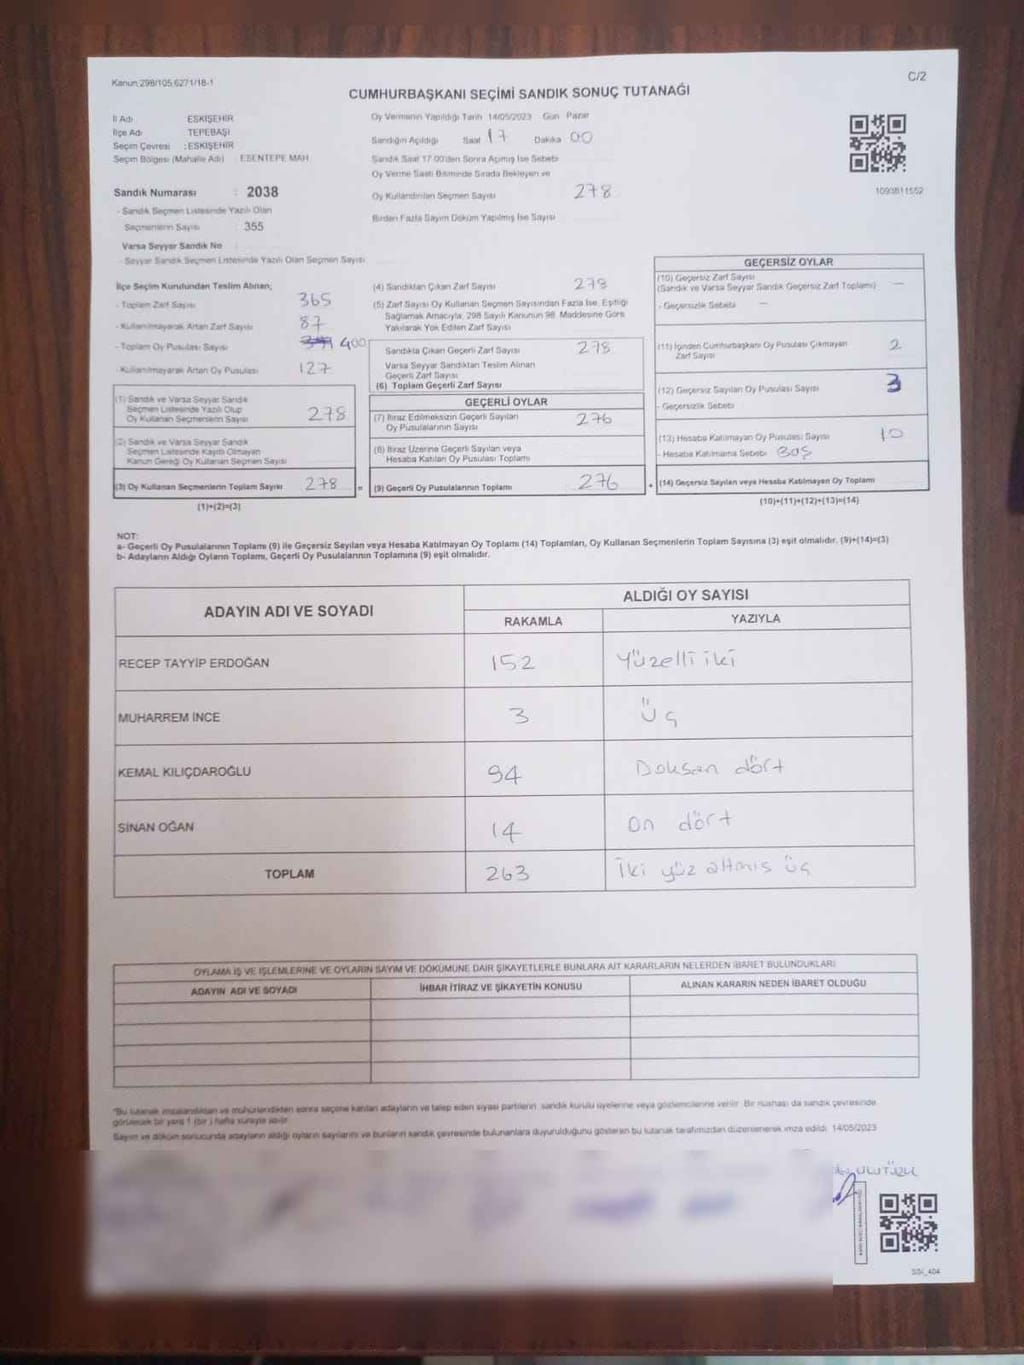 Kanun:298/105,6271/18-1
C/2
CUMHURBAŞKANI SEÇİMİ SANDIK SONUÇ TUTANAĞI
İl Adı ESKİŞEHİR
İlçe Adı TEPEBAŞI
Seçim Çevresi : ESKİŞEHİR
Seçim Bölgesi (Mahalle Adı) ESENTEPE MAH
Sandık Numarası : 2038
- Sandık Seçmen Listesinde Yazılı Olan
Seçmenlerin Sayısı : 355
Varsa Seyyar Sandık No
- Seyyar Sandık Seçmen Listesinde Yazılı Olan Seçmen Sayısı
Oy Vermenin Yapıldığı Tarih 14/05/2023 Gün Pazar
Sandığın Açıldığı Saat 17 Dakika 00
Sandık Saat 17.00'den Sonra Açılmış İse Sebebi
Oy Verme Saati Bitiminde Sırada Bekleyen ve
Oy Kullandırılan Seçmen Sayısı 278
Birden Fazla Sayım Döküm Yapılmış İse Sayısı
1093811552
İlçe Seçim Kurulundan Teslim Alınan;
- Toplam Zarf Sayısı 365
- Kullanılmayarak Artan Zarf Sayısı 87
- Toplam Oy Pusulası Sayısı 400
- Kullanılmayarak Artan Oy Pusulası 127
(1) Sandık ve Varsa Seyyar Sandık
Seçmen Listesinde Yazılı Olup
Oy Kullanan Seçmenlerin Sayısı 278
(2) Sandık ve Varsa Seyyar Sandık
Seçmen Listesinde Kayıtlı Olmayan
Kanun Gereği Oy Kullanan Seçmen Sayısı
(3) Oy Kullanan Seçmenlerin Toplam Sayısı 278 =
(1)+(2)=(3)
(4) Sandıktan Çıkan Zarf Sayısı 278
(5) Zarf Sayısı Oy Kullanan Seçmen Sayısından Fazla İse, Eşitliği
Sağlamak Amacıyla, 298 Sayılı Kanunun 98. Maddesine Göre
Yakılarak Yok Edilen Zarf Sayısı
Sandıkta Çıkan Geçerli Zarf Sayısı 278
Varsa Seyyar Sandıktan Teslim Alınan
Geçerli Zarf Sayısı
(6) Toplam Geçerli Zarf Sayısı
GEÇERLİ OYLAR
(7) İtiraz Edilmeksizin Geçerli Sayılan
Oy Pusulalarının Sayısı 276
(8) İtiraz Üzerine Geçerli Sayılan veya
Hesaba Katılan Oy Pusulası Toplamı
(9) Geçerli Oy Pusulalarının Toplamı 276 +
GEÇERSİZ OYLAR
(10) Geçersiz Zarf Sayısı
(Sandık ve Varsa Seyyar Sandık Geçersiz Zarf Toplamı) —
- Geçersizlik Sebebi —
(11) İçinden Cumhurbaşkanı Oy Pusulası Çıkmayan
Zarf Sayısı 2
(12) Geçersiz Sayılan Oy Pusulası Sayısı 3
- Geçersizlik Sebebi
(13) Hesaba Katılmayan Oy Pusulası Sayısı 10
- Hesaba Katılmama Sebebi BOŞ
(14) Geçersiz Sayılan veya Hesaba Katılmayan Oy Toplamı
(10)+(11)+(12)+(13)=(14)
NOT:
a- Geçerli Oy Pusulalarının Toplamı (9) ile Geçersiz Sayılan veya Hesaba Katılmayan Oy Toplamı (14) Toplamları, Oy Kullanan Seçmenlerin Toplam Sayısına (3) eşit olmalıdır. (9)+(14)=(3)
b- Adayların Aldığı Oyların Toplamı, Geçerli Oy Pusulalarının Toplamına (9) eşit olmalıdır.
ADAYIN ADI VE SOYADI
ALDIĞI OY SAYISI
RAKAMLA YAZIYLA
RECEP TAYYİP ERDOĞAN 152 Yüzelli iki
MUHARREM İNCE 3 Üç
KEMAL KILIÇDAROĞLU 94 Doksan dört
SİNAN OĞAN 14 on dört
TOPLAM 263 İki yüz altmış üç
OYLAMA İŞ VE İŞLEMLERİNE VE OYLARIN SAYIM VE DÖKÜMÜNE DAİR ŞİKAYETLERLE BUNLARA AİT KARARLARIN NELERDEN İBARET BULUNDUKLARI
ADAYIN ADI VE SOYADI İHBAR İTİRAZ VE ŞİKAYETİN KONUSU ALINAN KARARIN NEDEN İBARET OLDUĞU
*Bu tutanak imzalandıktan ve mühürlendikten sonra seçime katılan adayların ve talep eden siyasi partilerin sandık kurulu üyelerine veya gözlemcilerine verilir. Bir nüshası da sandık çevresinde
görülecek bir yere 1 (bir) hafta süreyle asılır.
Sayım ve döküm sonucunda adayların aldığı oyların sayılarını ve bunların sandık çevresinde bulunanlara duyurulduğunu gösteren bu tutanak tarafımızdan düzenlenerek imza edildi. 14/05/2023
SSİ_404